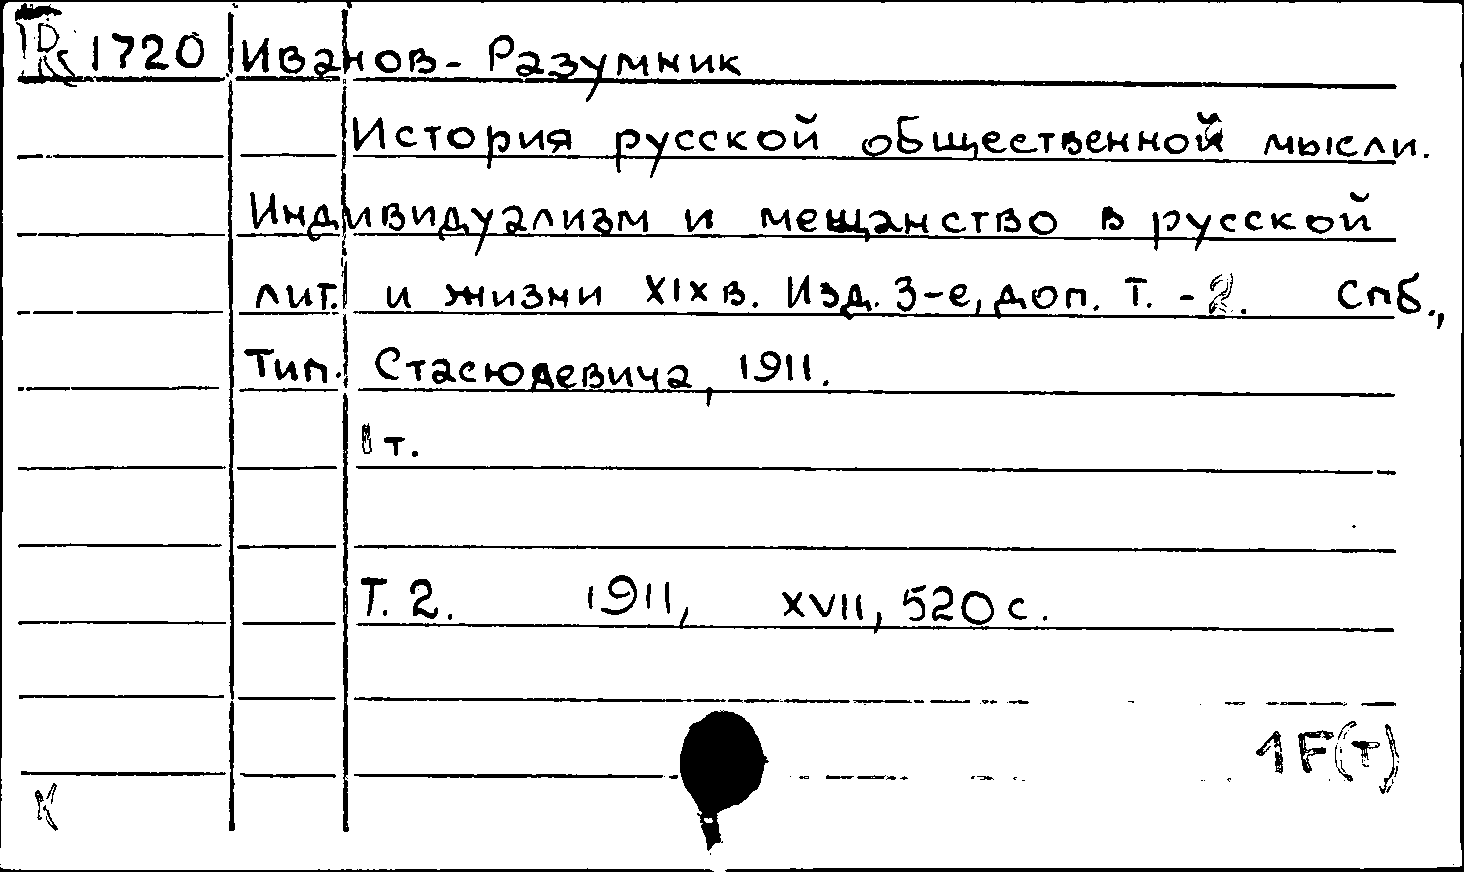 R 1720 Иванов-Разумник
История русской общественной мысли.
Индивидуализм и мещанство в русской
лит. и жизни XIX в. Изд. 3-е, доп. Т. -2. Спб.,
Тип. Стасюлевича, 1911.
1 т.
Т. 2. 1911, XVII, 520 с.
1F(т)
K